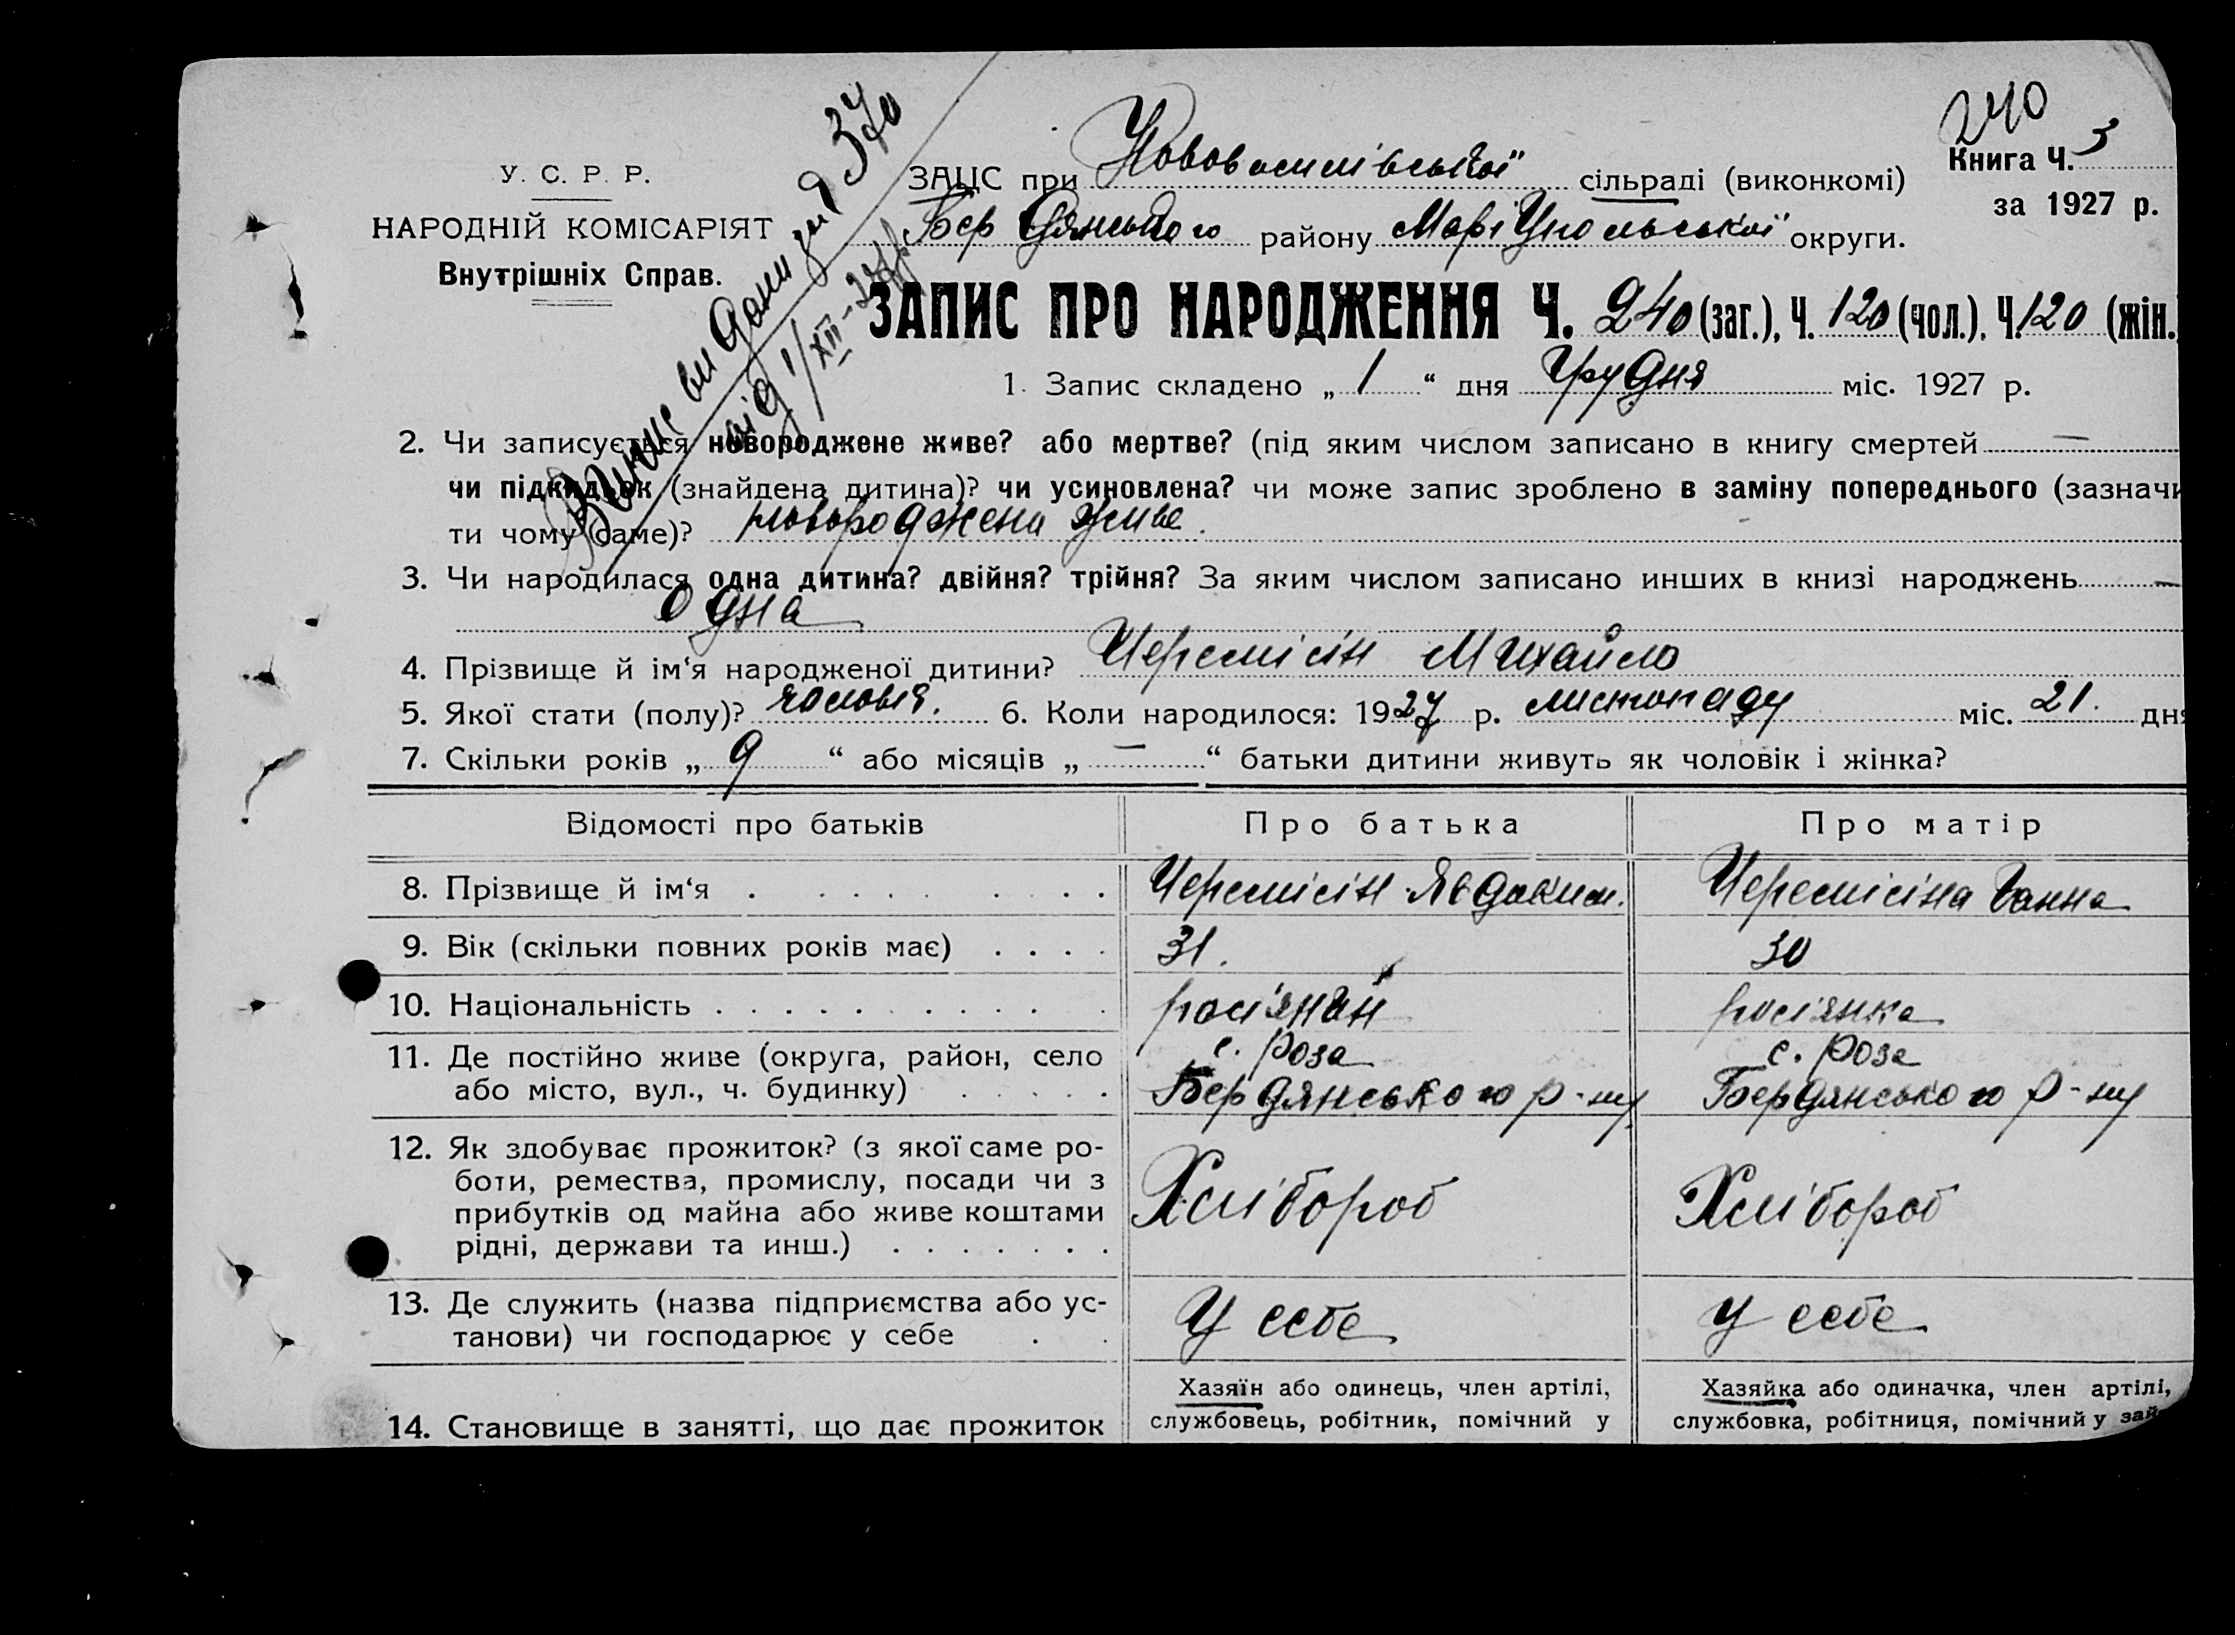 240
Книга Ч. 3
за 1927 р.
У. С. Р. Р.
НАРОДНІЙ КОМІСАРІЯТ
Внутрішніх Справ.
ЗАЦС при Нововасилівської сільраді (виконкомі)
Бердянського району Маріупольської округи.
370
від 1/XII-27 р.
ЗАПИС ПРО НАРОДЖЕННЯ Ч. 240 (заг.), Ч. 120 (чол.), Ч. 120 (жін.
1. Запис складено „ 1 “ дня Грудня міс. 1927 р.
2. Чи записується новороджене живе? або мертве? (під яким числом записано в книгу смертей —
чи підкидьок (знайдена дитина)? чи усиновлена? чи може запис зроблено в заміну попереднього (зазначи
ти чому саме)? новороджена живе.
3. Чи народилася одна дитина? двійня? трійня? За яким числом записано инших в книзі народжень —
Одна
4. Прізвище й ім‘я народженої дитини? Черемісін Михайло
5. Якої стати (полу)? чоловіч. 6. Коли народилося: 1927 р. листопаду міс. 21. дня
7. Скільки років „ 9 “ або місяців „ — “ батьки дитини живуть як чоловік і жінка?
Відомості про батьків Про батька Про матір
8. Прізвище й ім‘я Черемісін Явдоким. Черемісіна Ганна
9. Вік (скільки повних років має) 31. 30
10. Національність росіянин росіянка
11. Де постійно живе (округа, район, село с. Роза с. Роза
або місто, вул., ч. будинку) Бердянського р-ну Бердянського р-ну
12. Як здобуває прожиток? (з якої саме ро-
боти, ремества, промислу, посади чи з
прибутків од майна або живе коштами Хлібороб Хлібороб
рідні, держави та инш.)
13. Де служить (назва підприємства або ус- У себе У себе
танови) чи господарює у себе
Хазяїн або одинець, член артілі, Хазяйка або одиначка, член артілі,
14. Становище в занятті, що дає прожиток службовець, робітник, помічний у службовка, робітниця, помічний у зай